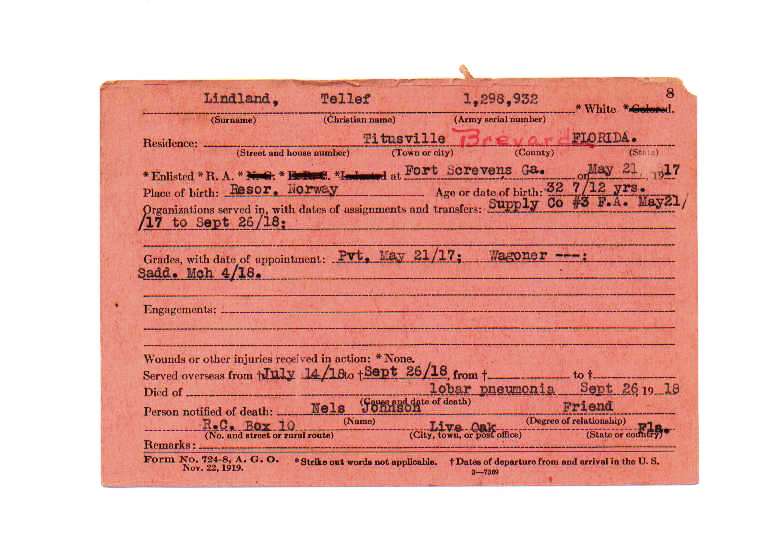 8
Lindland, Tellef 1,298,932 * White * Colored.
(Surname) (Christian name) (Army serial number)
Residence: Titusville Brevard FLORIDA.
(Street and house number) (Town or city) (County) (State)
* Enlisted * R. A. * N. G. * E. R. C. * Inducted at Fort Screvens Ga. on May 21, 1917
Place of birth: Resor, Norway Age or date of birth: 32 7/12 yrs.
Organizations served in, with dates of assignments and transfers: Supply Co #3 F.A. May21/
/17 to Sept 26/18;
Grades, with date of appointment: Pvt, May 21/17; Wagoner ---;
Sadd. Mch 4/18.
Engagements:
Wounds or other injuries received in action: * None.
Served overseas from †July 14/18 to †Sept 26/18, from † to †
Died of lobar pneumonia Sept 26 19 18
(Cause and date of death)
Person notified of death: Nels Johnson Friend
(Name) (Degree of relationship)
R.C. Box 10 Live Oak Fla.
(No. and street or rural route) (City, town, or post office) (State or country)
Remarks:
Form No. 724-8, A. G. O. * Strike out words not applicable. † Dates of departure from and arrival in the U. S.
Nov. 22, 1919. 3—7369